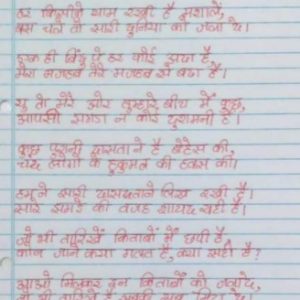 हर किसीने थाम रखी है मशालें,
बस चले तो सारी दुनिया को जला दे।
इक ही बिंदु पे हर कोई अड़ा है,
मेरा मजहब तेरे मजहब से बड़ा है।
यू तो मेरे और तुम्हारे बीच में कुछ,
आपसी झगडा न कोई दुश्मनी है।
कुछ पुरानी दासताने है बेहेस की,
चंद लोगो के हुकुमत की हवस की।
हमने सारी दासदताने लिख रखी है।
सारे झगडे की वजह शायद यही है।
जो भी तारिखें किताबों में छपी है,
कौन जाने क्या गलत है, क्या सही है?
आओ मिलकर इन किताबों को जलादे,